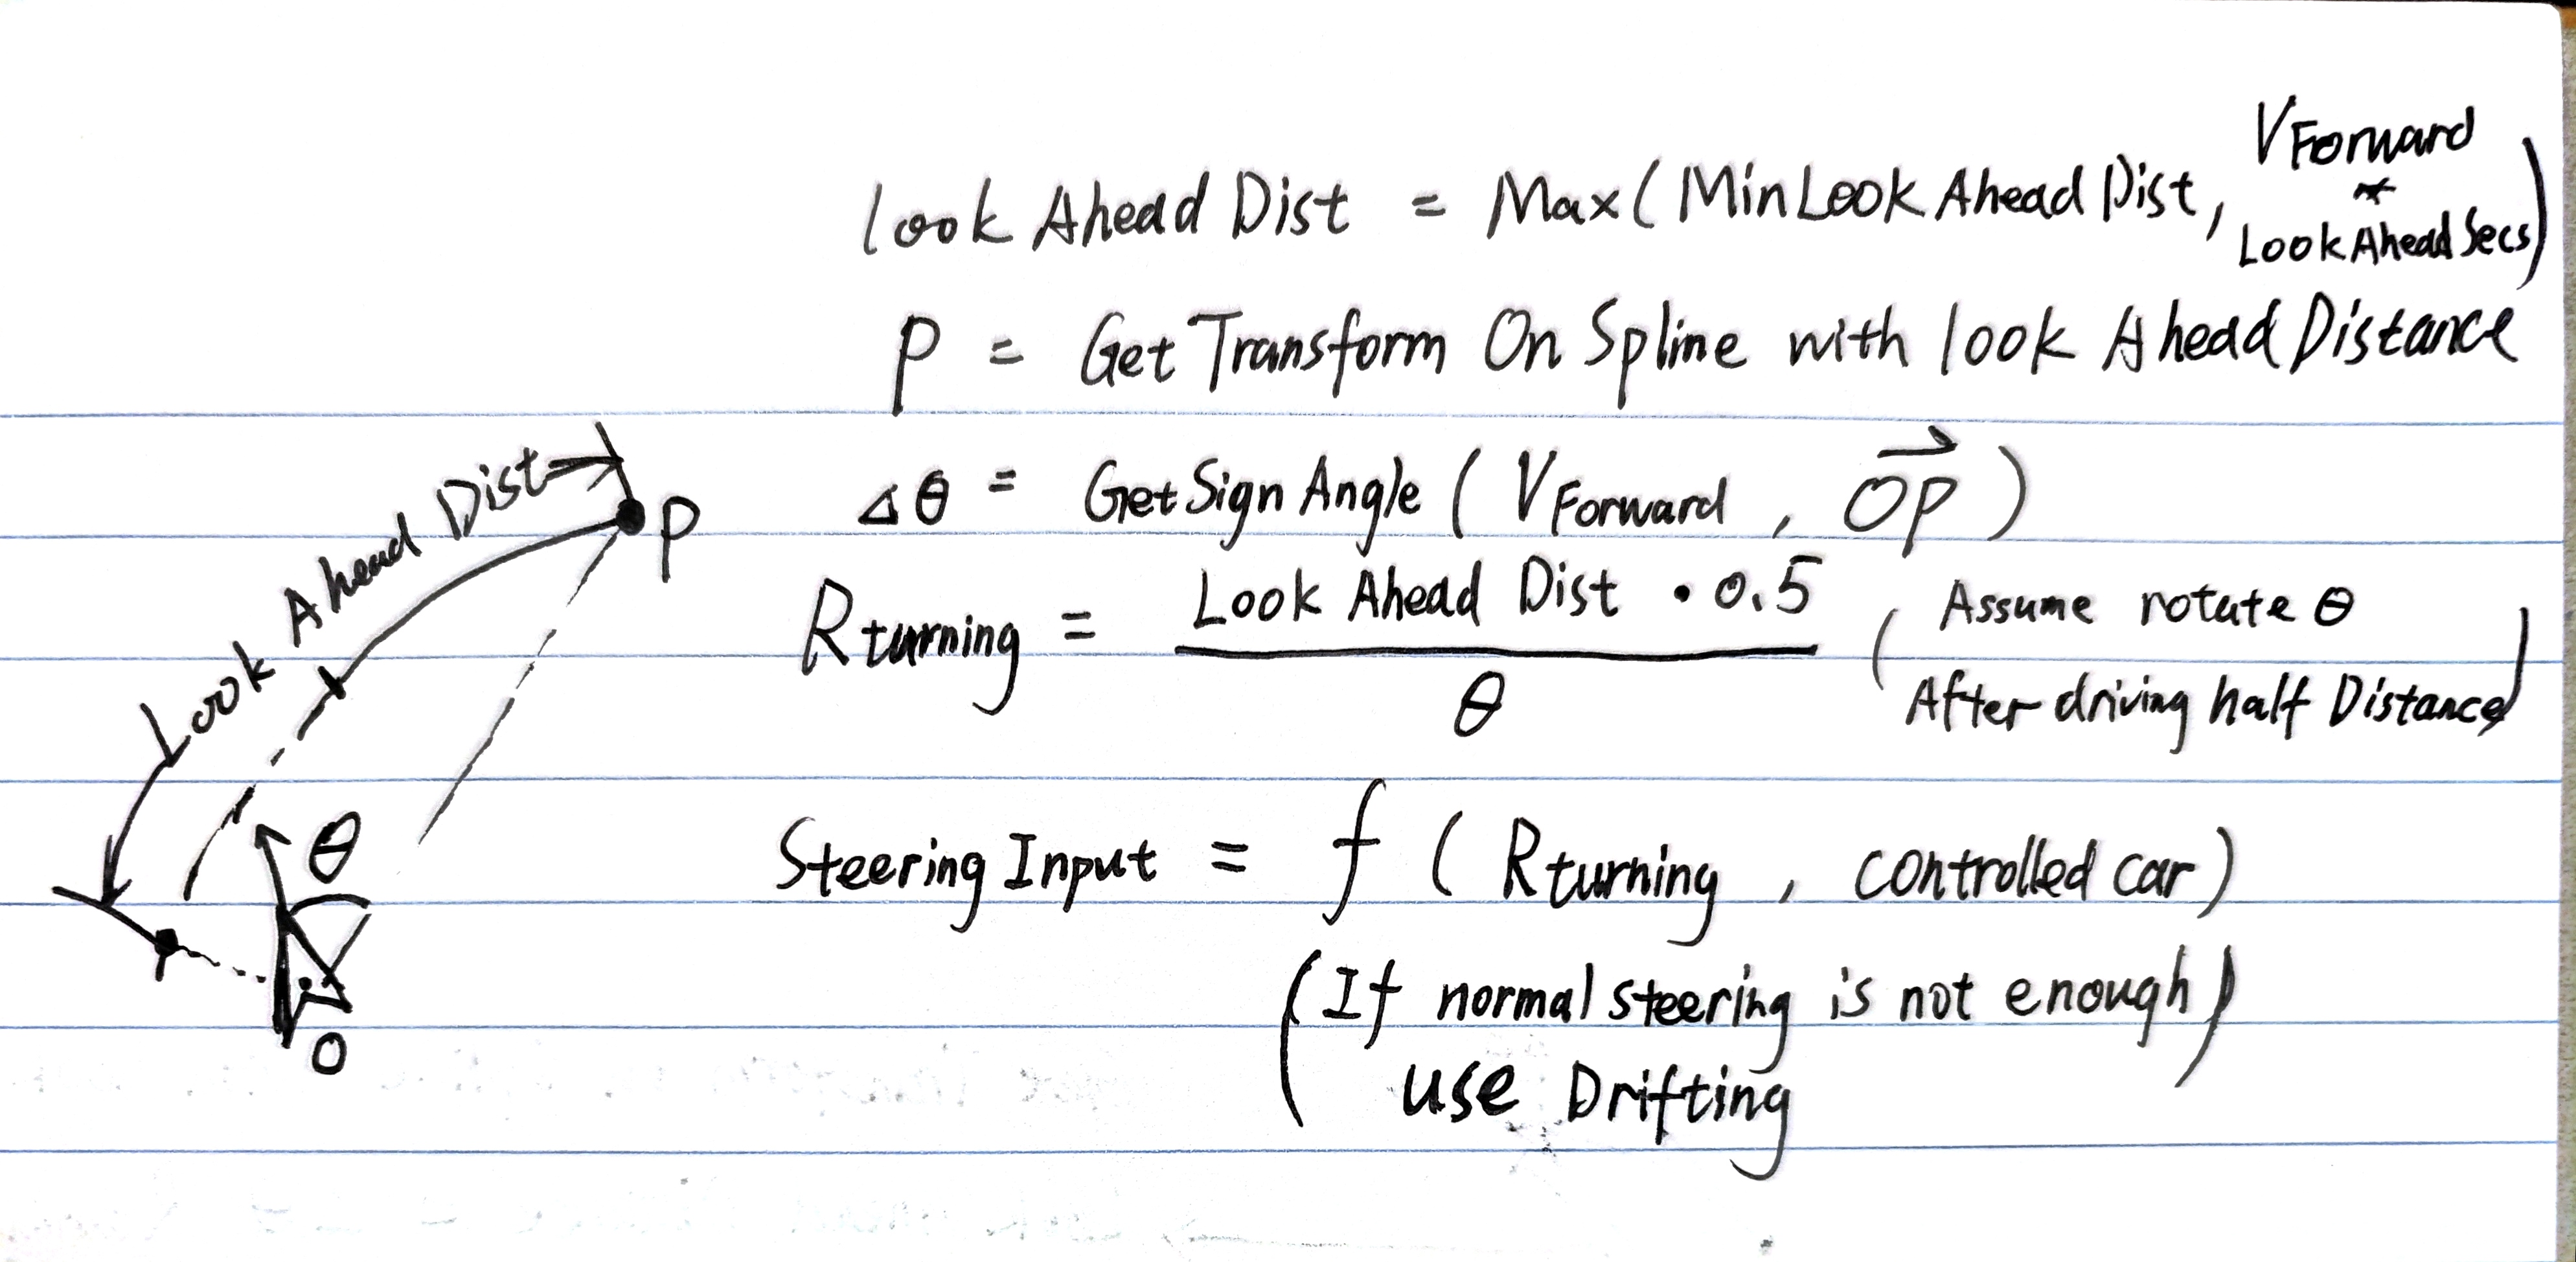 look Ahead Dist = Max(MinLook Ahead Dist, VForward * LookAhead Secs)
P = Get Transform On Spline with look Ahead Distance
Δθ = Get Sign Angle ( VForward , OP )
Look Ahead Dist • 0.5
Rturning = ―
θ
( Assume rotate θ
After driving half Distance)
Steering Input = f ( Rturning , controlled car)
(If normal steering is not enough)
use Drifting
Look Ahead Dist
P
θ
O